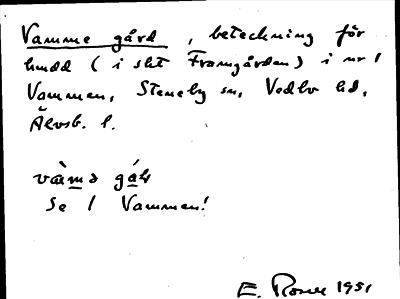 Vamme gård, beteckning för
hmdd (i sht Framgården) i nr 1
Vammen, Steneby sn, Vedbo hd,
Älvsb. l.
Se 1 Vammen!
E. Rosell 1951